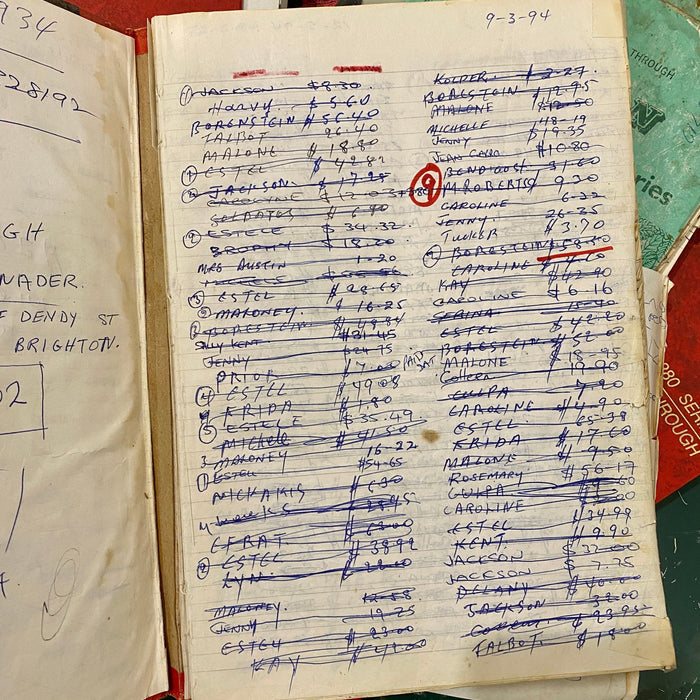 934
P28192
GH
NADER.
F DENDY ST
BRIGHTON.
02
9-3-94
① JACKSON $8.30
HARVY. $5.60
BORENSTEIN $56.40
TALBOT 96.40
MALONE $18.80
ESTEL $42.82
JACKSON $17.28
CAROLYNE $12.03
SOLDATOS $6.90
ESTELE $34.32
BROPHY $18.20
MRS AUSTIN 1-20
ESTEL $28.65
MALONEY. $16-25
BORESTEIN $49.84
SALLY KENT $31.45
JENNY $24.75
PRIOR $7.00
④ ESTEL $49.08
FRIDA $1.80
⑤ ESTELE $35.49
MICHELE $41.50
3 MALONEY 16-22
ESTEL $54-65
NICKAKIS
EFRAT $63.00
ESTEL $38.92
LYN.
MALONEY. 12-58
JENNY 19-25
ESTELL $23.00
KAY $49.00
KOLDER $3-27.
BORESTEIN $12-95
MALONE $12-50
MICHELLE $48-19
JENNY $19.35
JEAN CARRO $10.80
BENDIGOST 31-60
⑨ M ROBERTS 9.30
CAROLINE 6-22
JENNY. 26-35
TUCKER $3.70
BORESTEIN $58.50
CAROLINE
KAY $42.90
CAROLINE $6-16
SERINA 15-40
ESTEL $42.20
BORESTEIN $52.00
MALONE $18-95
COLLEEN 19.90
CULPA 7.90
CAROLINE $4.90
ESTEL. 65-38
FRIDA $17-60
MALONE $19-50
ROSEMARY $56-17
GULPA
CAROLINE
ESTEL $34.99
KENT. $9.90
JACKSON $32-00
JACKSON $7.75
DELANY $40.00
JACKSON 32.00
COLLEEN $23.95
TALBOT. $18.00
THROUGH
ries
280 SE
THROUGH